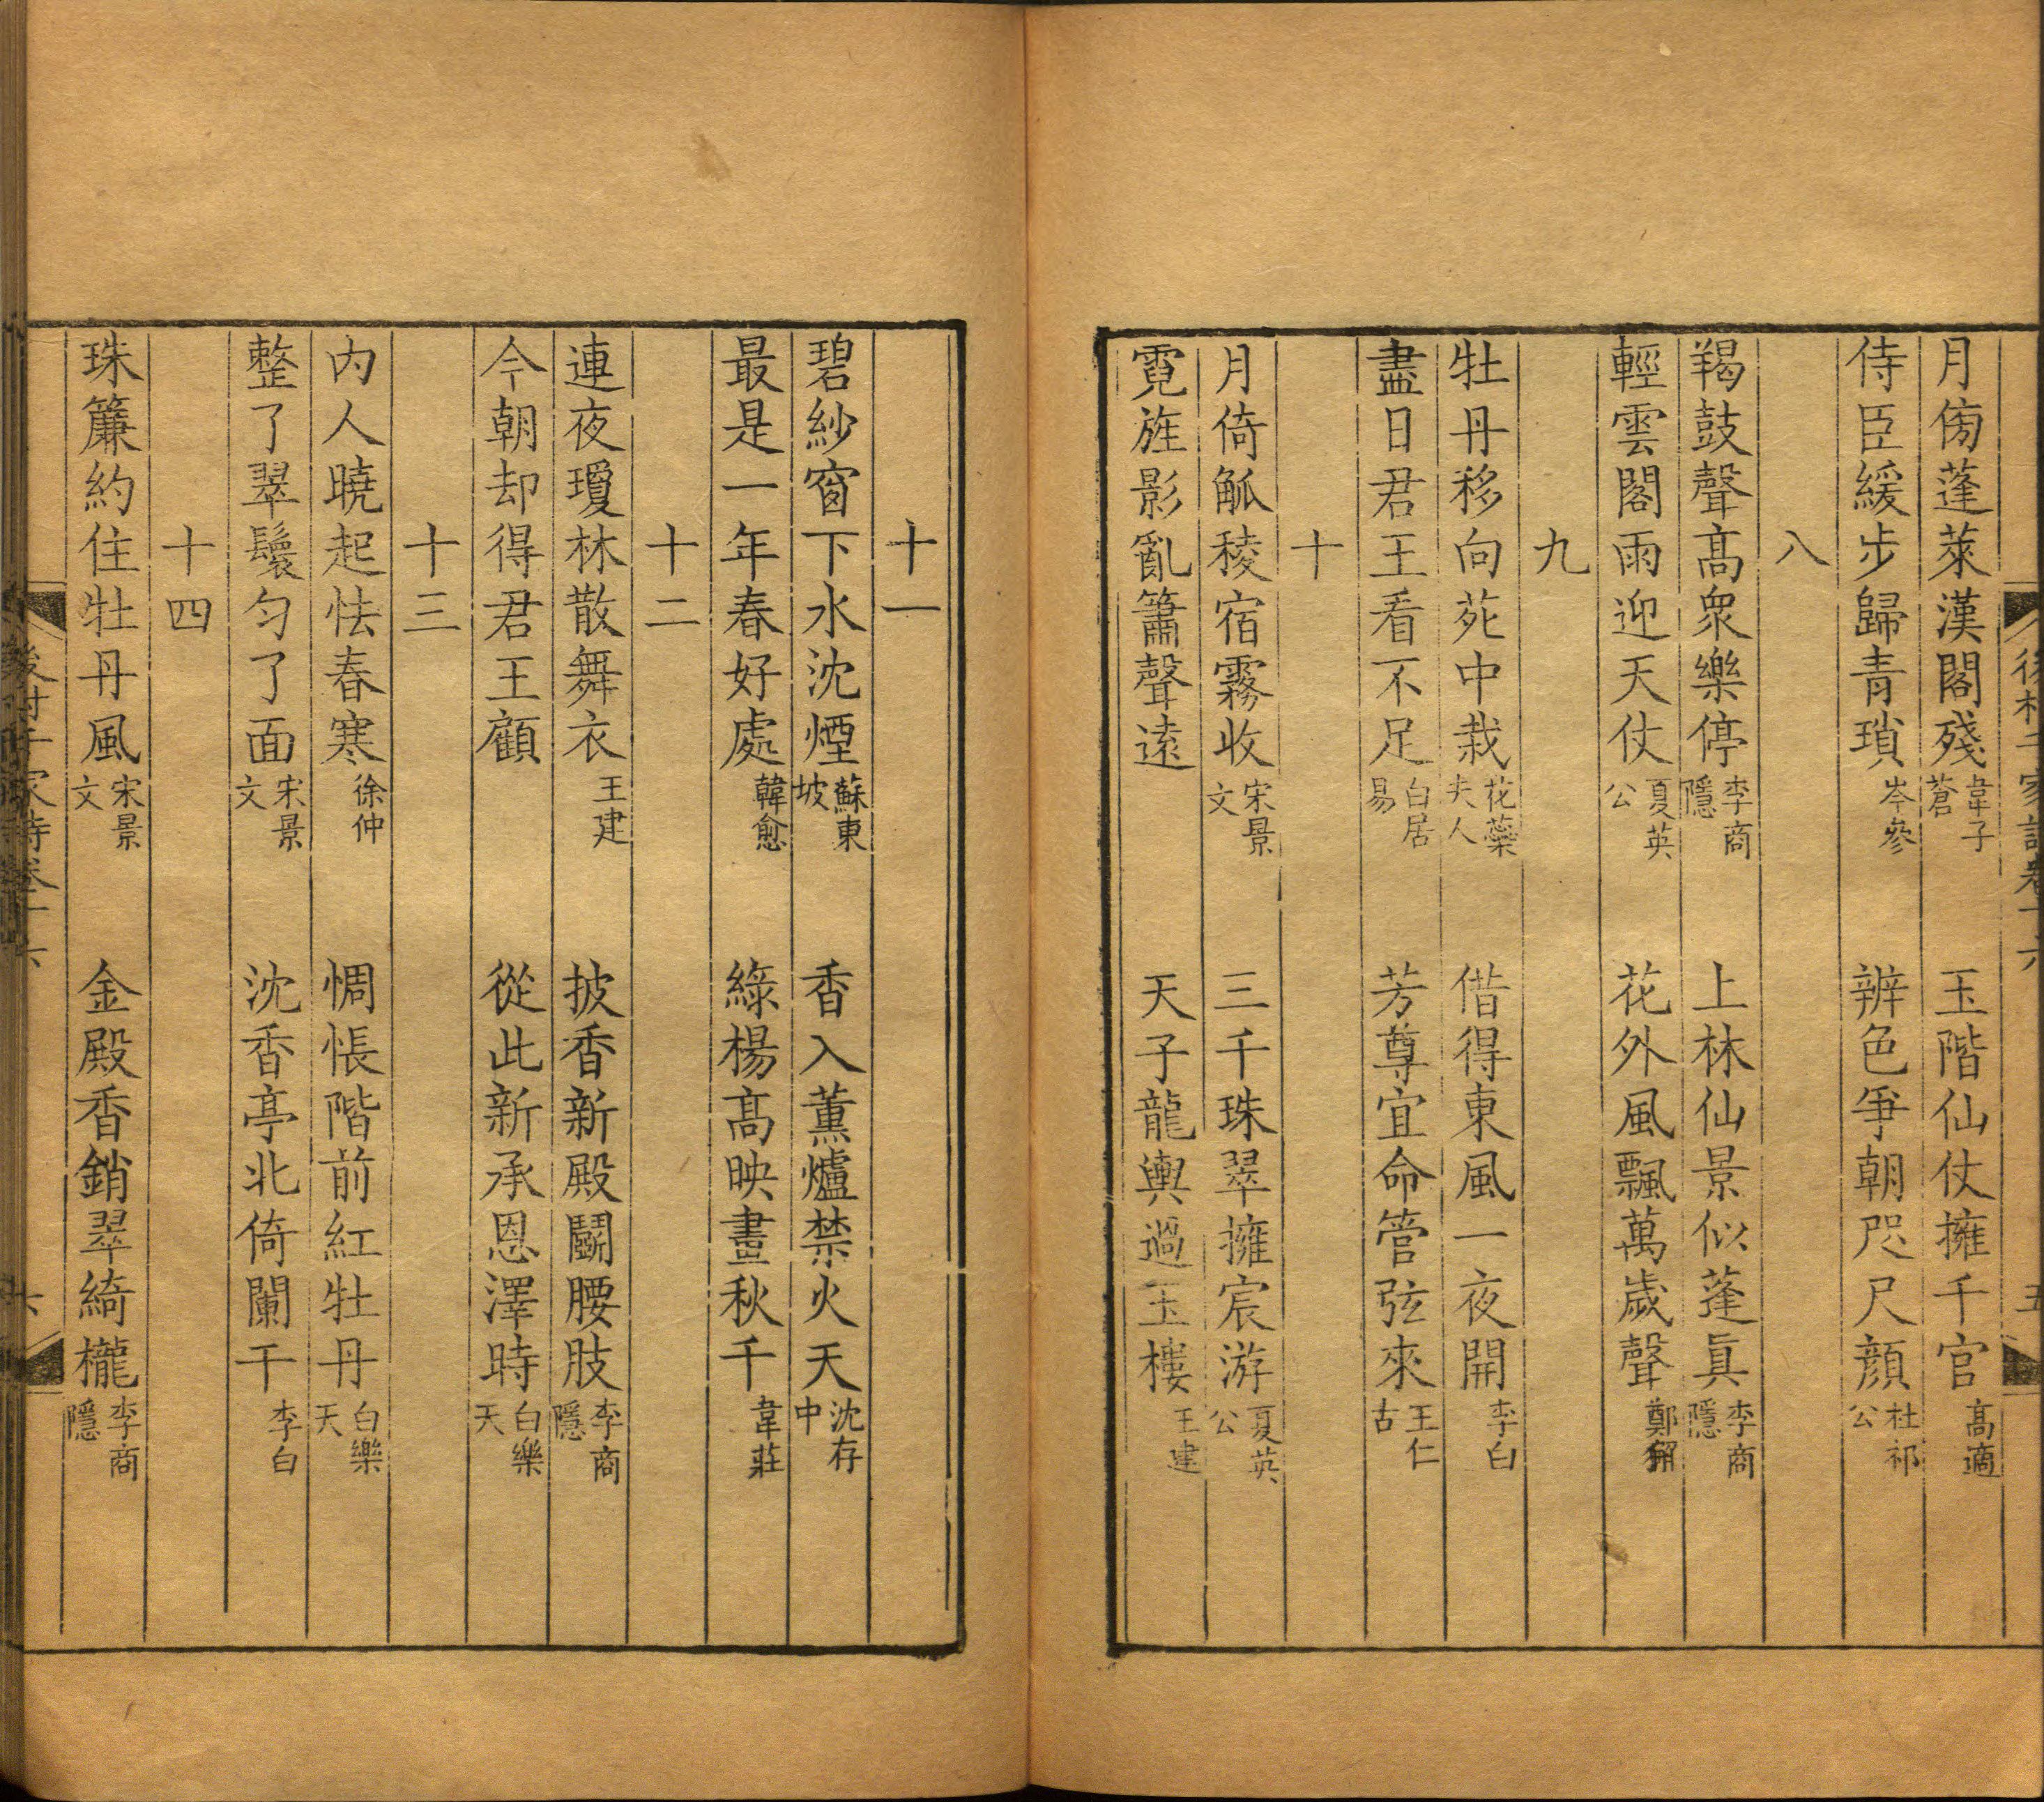 月傍蓬萊漢閣殘韋子蒼 玉階仙仗擁千官高適
侍臣緩步歸青瑣岑參 辨色爭朝咫尺顏杜祁公
八
羯鼓聲高眾樂停李商隱 上林仙景似蓬眞李商隱
輕雲閣雨迎天仗夏英公 花外風飄萬歲聲鄭獬
九
牡丹移向苑中栽花蘂夫人 借得東風一夜開李白
盡日君王看不足白居易 芳尊宜命管弦來王仁古
十
月倚觚稜宿霧收宋景文 三千珠翠擁宸游夏英公
霓旌影亂簫聲遠 天子龍輿過玉樓王建
十一
碧紗窗下水沈煙蘇東坡 香入薰爐禁火天沈存中
最是一年春好處韓愈 綠楊高映畫秋千韋莊
十二
連夜瓊林散舞衣王建 披香新殿鬭腰肢李商隱
今朝却得君王顧 從此新承恩澤時白樂天
十三
內人曉起怯春寒徐仲 惆悵階前紅牡丹白樂天
整了翠鬟勻了面宋景文 沈香亭北倚闌干李白
十四
珠簾約住牡丹風宋景文 金殿香銷翠綺櫳李商隱